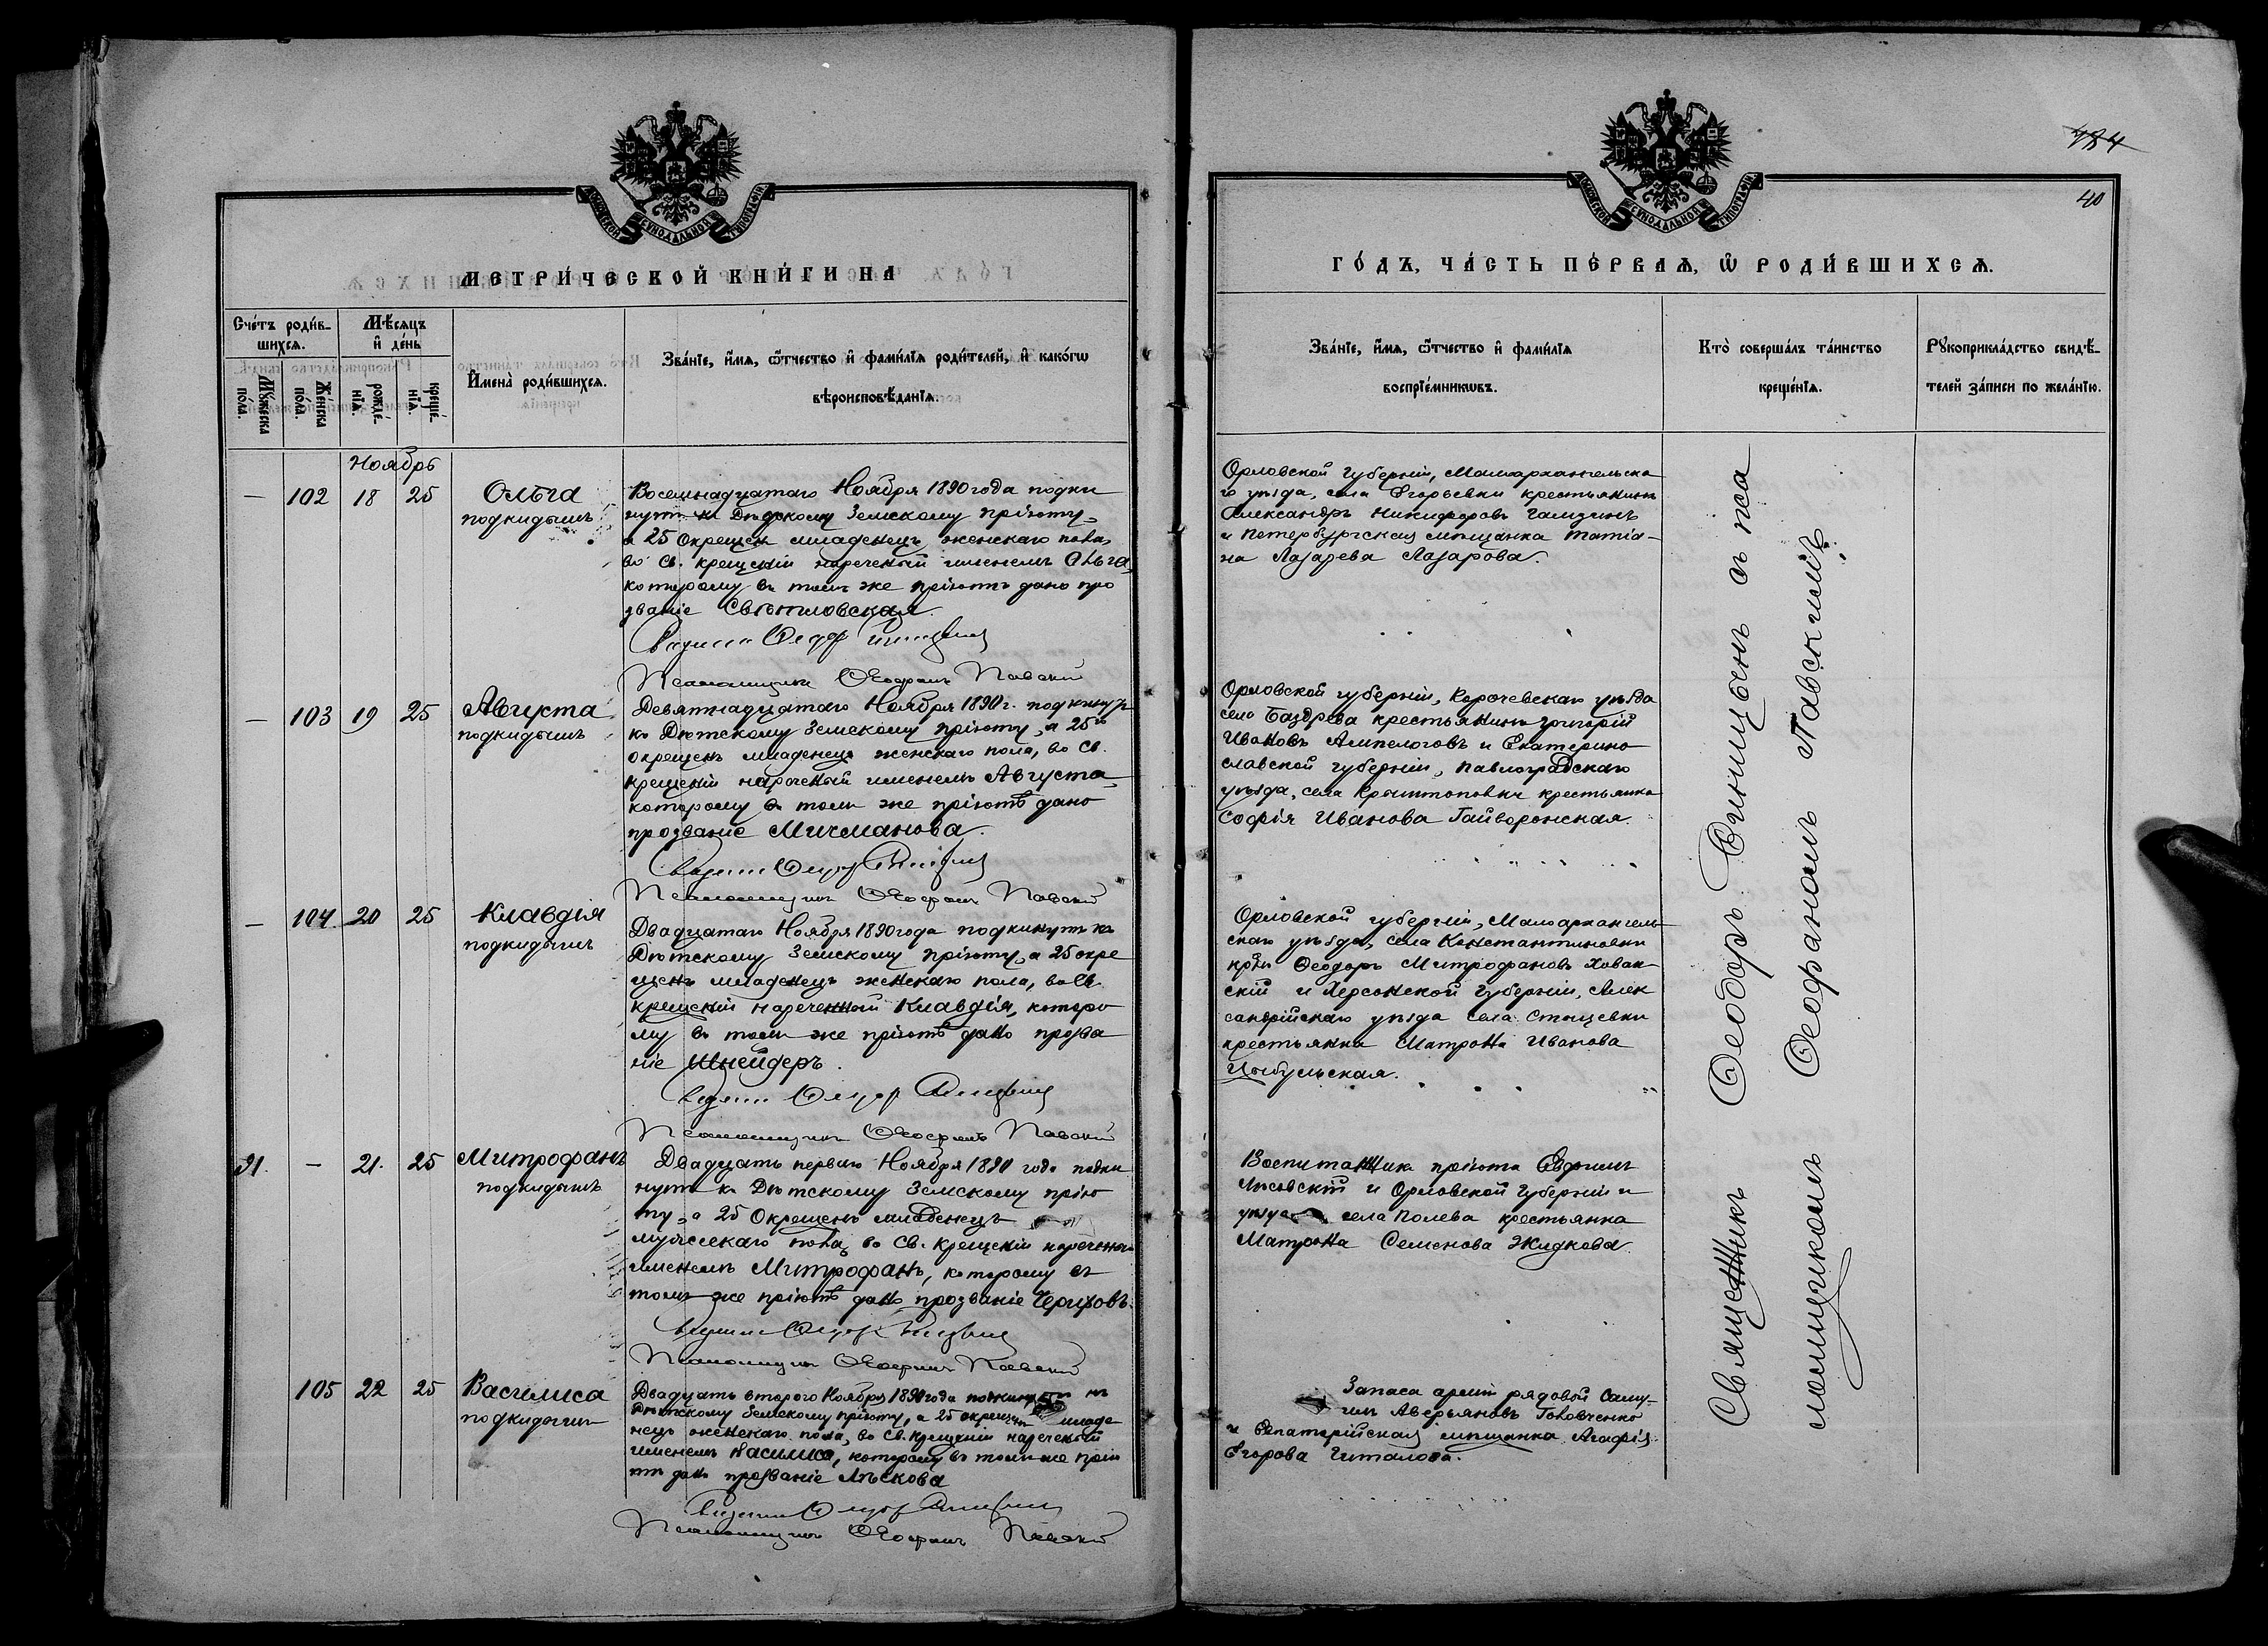 МЕТРИ́ЧЕСКОЙ КНИ́ГИ НА
Сче́тъ роди́в-
шихсѧ.
Мѣ́сѧцъ
и҆ де́нь
Мꙋ́жеска
пола.
Же́нска
пола.
рожде́-
нїѧ.
креще́-
нїѧ.
И҆мена̀ роди́вшихсѧ.
Зва́нїе, и҆́мѧ, ѻ҆́тчество и҆ фами́лїѧ роди́телей, и҆ како́гѡ
вѣроисповѣ́данїѧ.
Ноябрь
— 102 18 25
Ольга
подкидышъ
Восемнадцатаго Ноября 1890 года подки
нутъ къ Дѣтскому Земскому пріюту,
а 25 окрещен младенецъ женскаго пола,
во Св. крещеніи нареченый именемъ Ольга,
которому въ томъ же пріютѣ дано про
званіе Свѣтловская.
Псаломщикъ Ѳеофанъ Павскій
— 103 19 25
Августа
подкидышъ
Девятнадцатаго Ноября 1890 г. подкинутъ
къ Дѣтскому Земскому пріюту, а 25го
окрещенъ младенецъ женскаго пола, во Св.
крещеніи нареченый именемъ Августа,
которому въ томъ же пріютѣ дано
прозваніе Мичманова.
Псаломщикъ Ѳеофанъ Павскій
— 104. 20 25
Клавдія
подкидышъ
Двадцатаго Ноября 1890 года подкинутъ къ
Дѣтскому Земскому пріюту, а 25 окре
щенъ младенецъ женскаго пола, во Св.
крещеніи нареченный Клавдія, которо
му въ томъ же пріютѣ дано прозва
ніе Шнейдеръ.
Псаломщикъ Ѳеофанъ Павскій
91. — 21. 25
Митрофанъ
подкидышъ
Двадцать перваго Ноября 1890 года подки
нутъ къ Дѣтскому Земскому прію
ту, а 25 Окрещенъ младенецъ
мужескаго пола, во Св. крещеніи нареченый
именемъ Митрофанъ, которому въ
томъ же пріютѣ дано прозваніе
Псаломщикъ Ѳеофанъ Павскій
105 22 25
Василиса
подкидышъ
Двадцать второго Ноября 1890 года подкинутъ къ
Дѣтскому Земскому пріюту, а 25 окрещенъ младе
нецъ женскаго пола, во Св. крещеніи нареченый
именемъ Василиса, которому въ томъ же прію
тѣ дано прозваніе Лѣскова
Псаломщикъ Ѳеофанъ Павскій
484
40
ГО́ДЪ, ЧА́СТЬ ПЕ́РВАѦ, Ѡ҆ РОДИ́ВШИХСѦ.
Зва́нїе, и҆́мѧ, ѻ҆́тчество и҆ фами́лїѧ
воспрїе́мникѡвъ.
Кто̀ соверша́лъ та́инство
креще́нїѧ.
Рꙋкоприкла́дство свидѣ́-
телей за́писи по жела́нїю.
Орловской губерніи, Малоархангельска
го уѣзда, села Егорьевки крестьянинъ
Александръ Никифоровъ
и Петербургская мѣщанка Татіа-
на Лазарева Лазарова.
Орловской губерніи, Корочевскаго уѣзда
село крестьянинъ Григорій
Ивановъ и Екатерино
славской губерніи, Павлоградскаго
уѣзда, села крестьянка
Софія Иванова Гайворонская.
Орловской губерніи, Малоархангель-
скаго уѣзда, села Константиновки
Ѳеодоръ Митрофановъ Хован-
скій и Херсонской губерніи, Алек
сандрійскаго уѣзда села
крестьянка Матрона Иванова
Цыбульская.
Воспитанникъ пріюта Евфимъ
Лисовскій и Орловской губерніи и
уѣзда села Полева крестьянка
Матрона Семенова Жидкова.
Запаса арміи рядовой
Аверьяновъ Головченко
и Евпаторійская мѣщанка Агафія
Егорова Читалова.
Священникъ Ѳеодоръ Синицынъ съ пса
ломщикомъ Ѳеофаномъ Павскимъ.